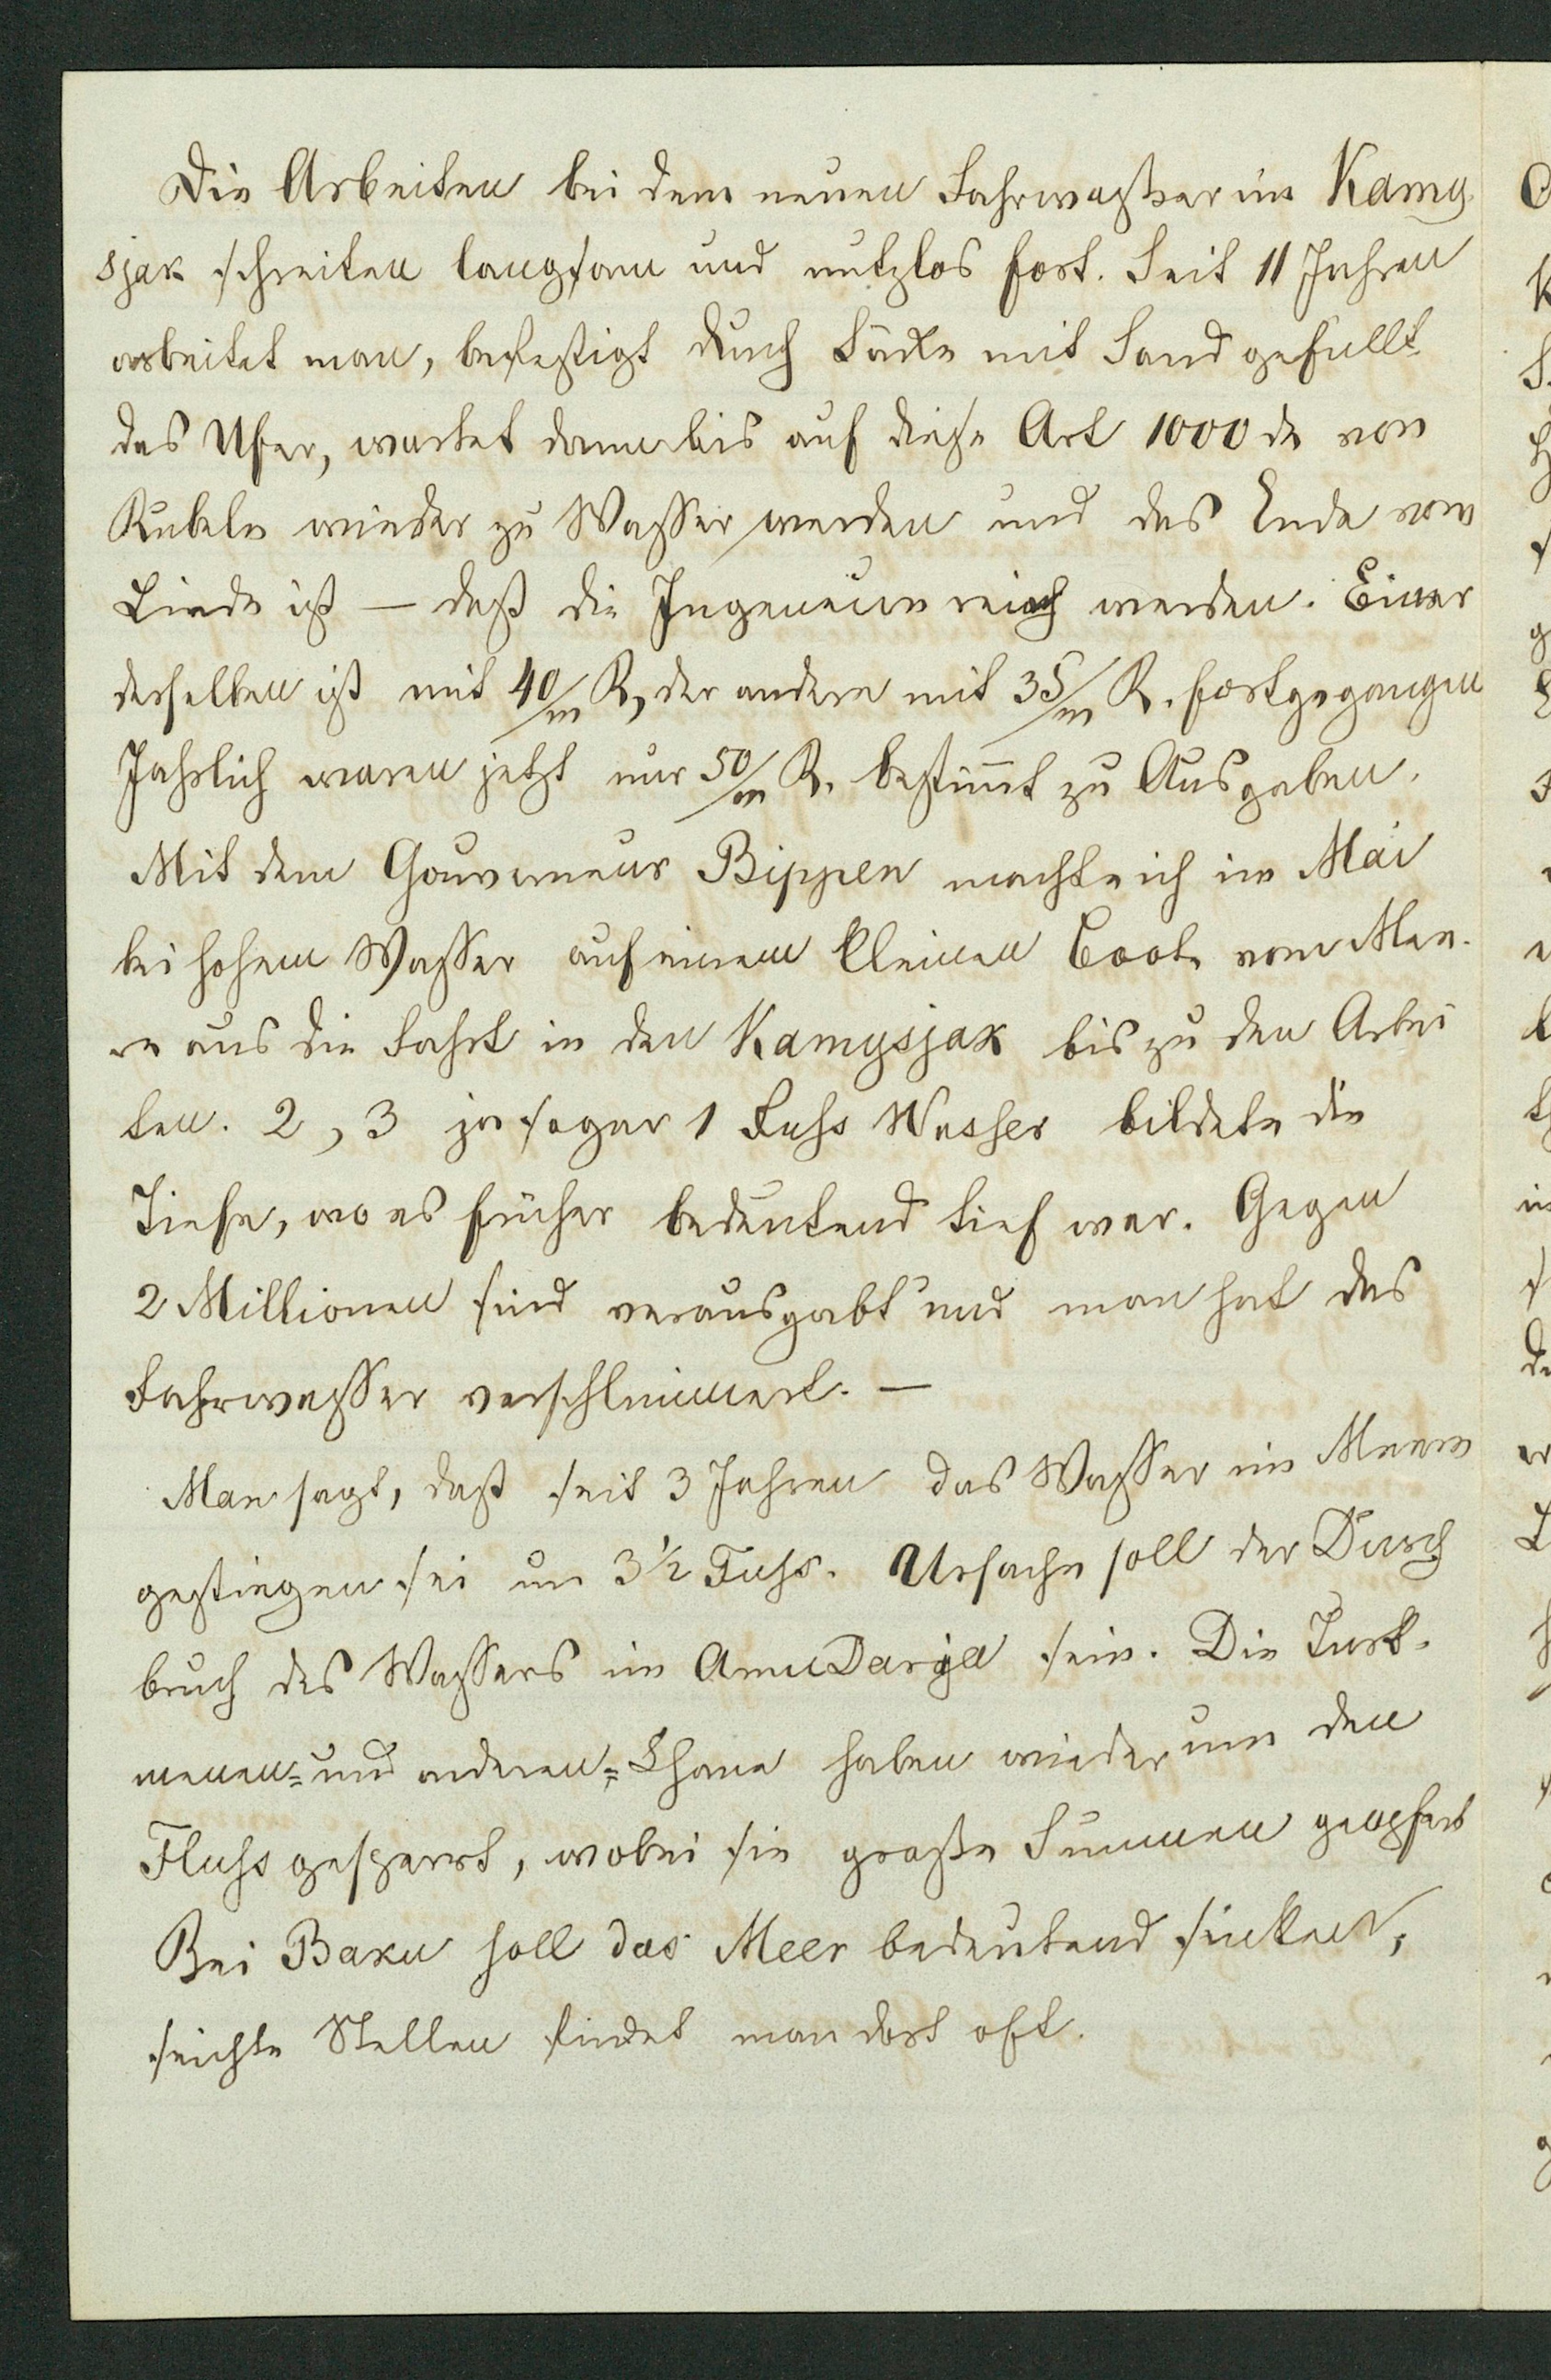 Die Arbeiten bei dem neuen Fahrwaßer im Kamy
sjak schreiten langsam und nutzlos fort. Seit 11 Jahren
arbeitet man, befestigt durch Säcke mit Sand gefüllt
das Ufer, wartet dann bis auf diese Art 1000de von
Rubeln wieder zu Wasser werden und das Ende vom
Liede ist — daß die Ingeneure reich werden. Einer
derselben ist mit 40/m R, der andere mit 35/m R. fortgegangen
Jahrlich waren jetzt nur 50/m R. bestim̅t zu Ausgaben.
Mit dem Gouverneur Bippen machte ich im Mai
bei hohem Wasser auf einem kleinen Boote vom Mee-
re aus die Fahrt in den Kamysjak bis zu den Arbei
ten. 2, 3 ja sogar 1 Fuss Wasser bildete die
Tiefe, wo es früher bedeutend tief war. Gegen
2 Millionen sind verausgabt und man hat das
Fahrwasser verschlimmert. —
Man sagt, daß seit 3 Jahren das Wasser im Meere
gestiegen sei um 3 ½ Fuss. Ursache soll der Durch
bruch des Wassers im Amu Darja sein. Die Turk-
menen= und anderen= Chane haben wiederum den
Fluss gesperrt, wobei sie große Summen geopfert
Bei Baku soll das Meer bedeutend sinken,
seichte Stellen findet man dort oft.